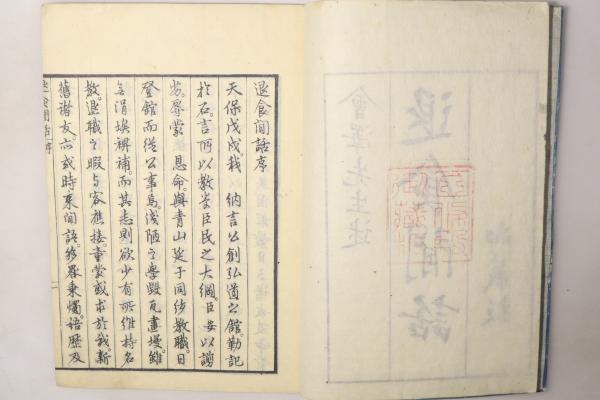 退食間話序
天保戊戌我 納言公創弘道之館勒記
於石言所以教導臣民之大綱臣安以謭
劣辱蒙 恩命與青山延于同徒教職日
登館而從公事焉淺陋之學毀瓦畫墁雖
無涓埃裨補而其志則欲少有所維持名
教退職之暇與客應接童蒙或求於我新
舊諸友亦或時來間語
秉燭語歷及
退食間話序
一
會澤先生述
退食間話